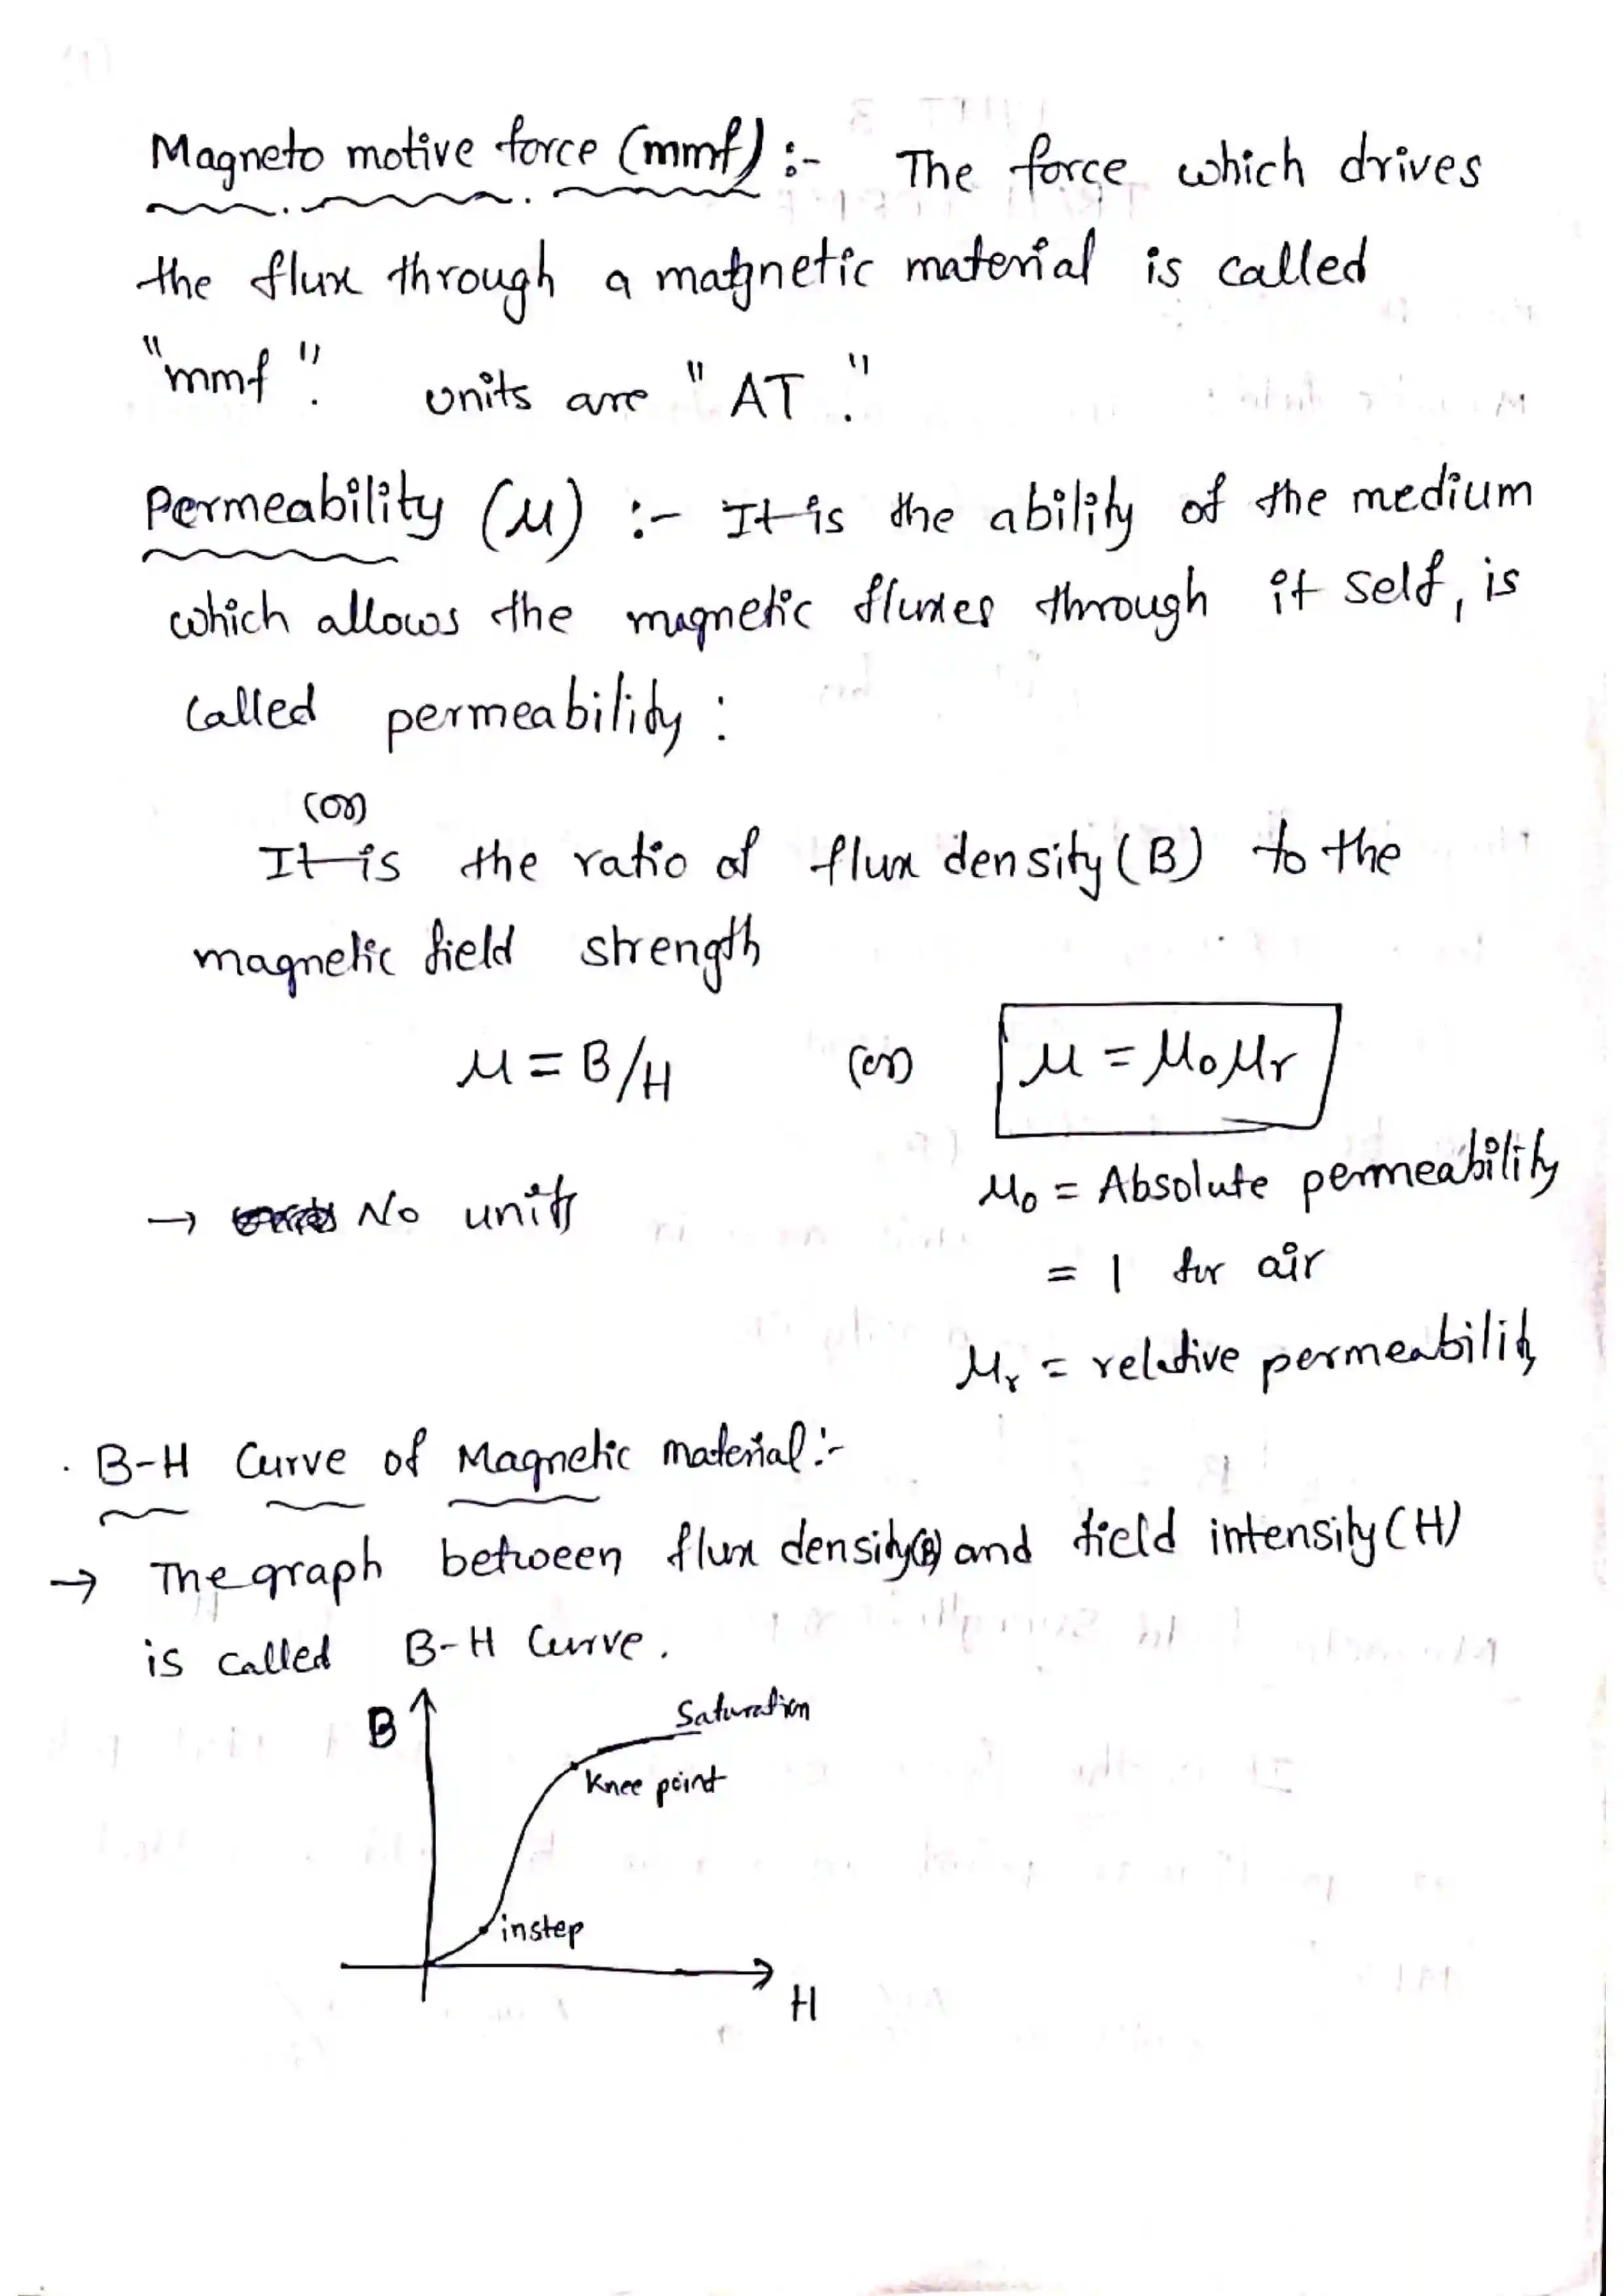 Magneto motive force (mmf) :- The force which drives
the flux through a magnetic material is called
"mmf". units are "AT."
Permeability (μ) :- It is the ability of the medium
which allows the magnetic fluxes through it self, is
called permeability :
(or)
It is the ratio of flux density (B) to the
magnetic field strength
μ = B/H (or) μ = μ₀μr
→ No units
μ₀ = Absolute permeability
= 1 for air
μr = relative permeability
. B-H Curve of Magnetic material :-
→ The graph between flux density(B) and field intensity (H)
is called B-H Curve.
B
Saturation
Knee point
instep
H